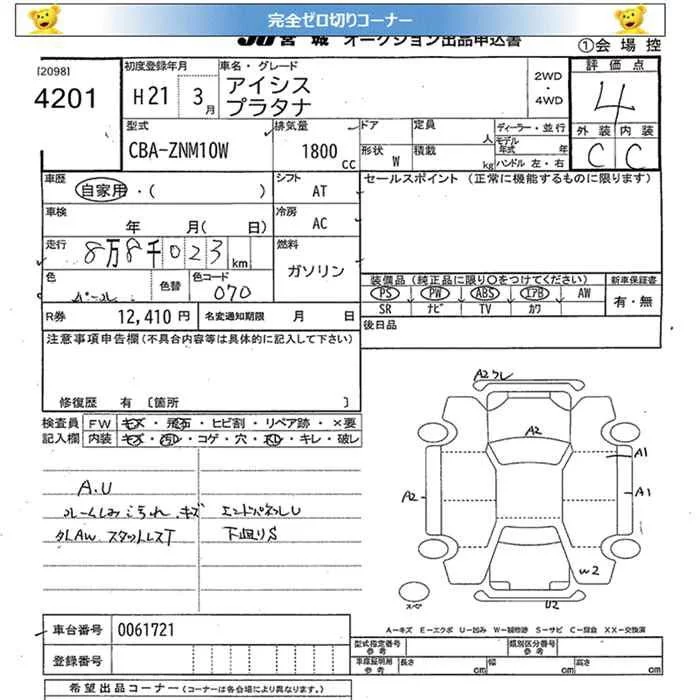 完全ゼロ切りコーナー
JU 宮城 オークション出品申込書
①会場控
[2098]
4201
初度登録年月 車名・グレード
H21 3月
アイシス
プラタナ
2WD
・
4WD
評価点
4
外装 内装
C C
型式 排気量 ドア 定員 人 ディーラー・並行
CBA-ZNM10W 1800cc
形状 W 積載 kg
モデル年式 年
ハンドル 左・右
車歴
自家用・( )
シフト AT
セールスポイント (正常に機能するものに限ります)
車検 年 月( 日)
冷房 AC
走行 8万8千023km
燃料 ガソリン
色 パール 色替 色コード 070
装備品 (純正品に限り○をつけてください) 新車保証書
PS PW ABS エアB AW
SR ナビ TV カワ
有・無
R券 12,410円 名変通知期限 月 日
後日品
注意事項申告欄 (不具合内容等は具体的に記入して下さい)
修復歴 有 [箇所 ]
検査員 FW キズ・飛石・ヒビ割・リペア跡・×要
記入欄 内装 キズ・汚れ・コゲ・穴・・キレ・破レ
A.U
キズ エンドパネルU
AW スタットレスT 下廻りS
A2 ワレ
A2
A1
A2
A1
W2
U2
スペア
A-キズ E-エクボ U-凹み W-補修跡 S-サビ C-腐食 XX-交換済
車台番号 0061721
登録番号
型式指定番号 参考 類別区分番号 参考
車庫証明用 参考 長さ cm 幅 cm 高さ cm
希望出品コーナー (コーナーは各会場により異なります。)